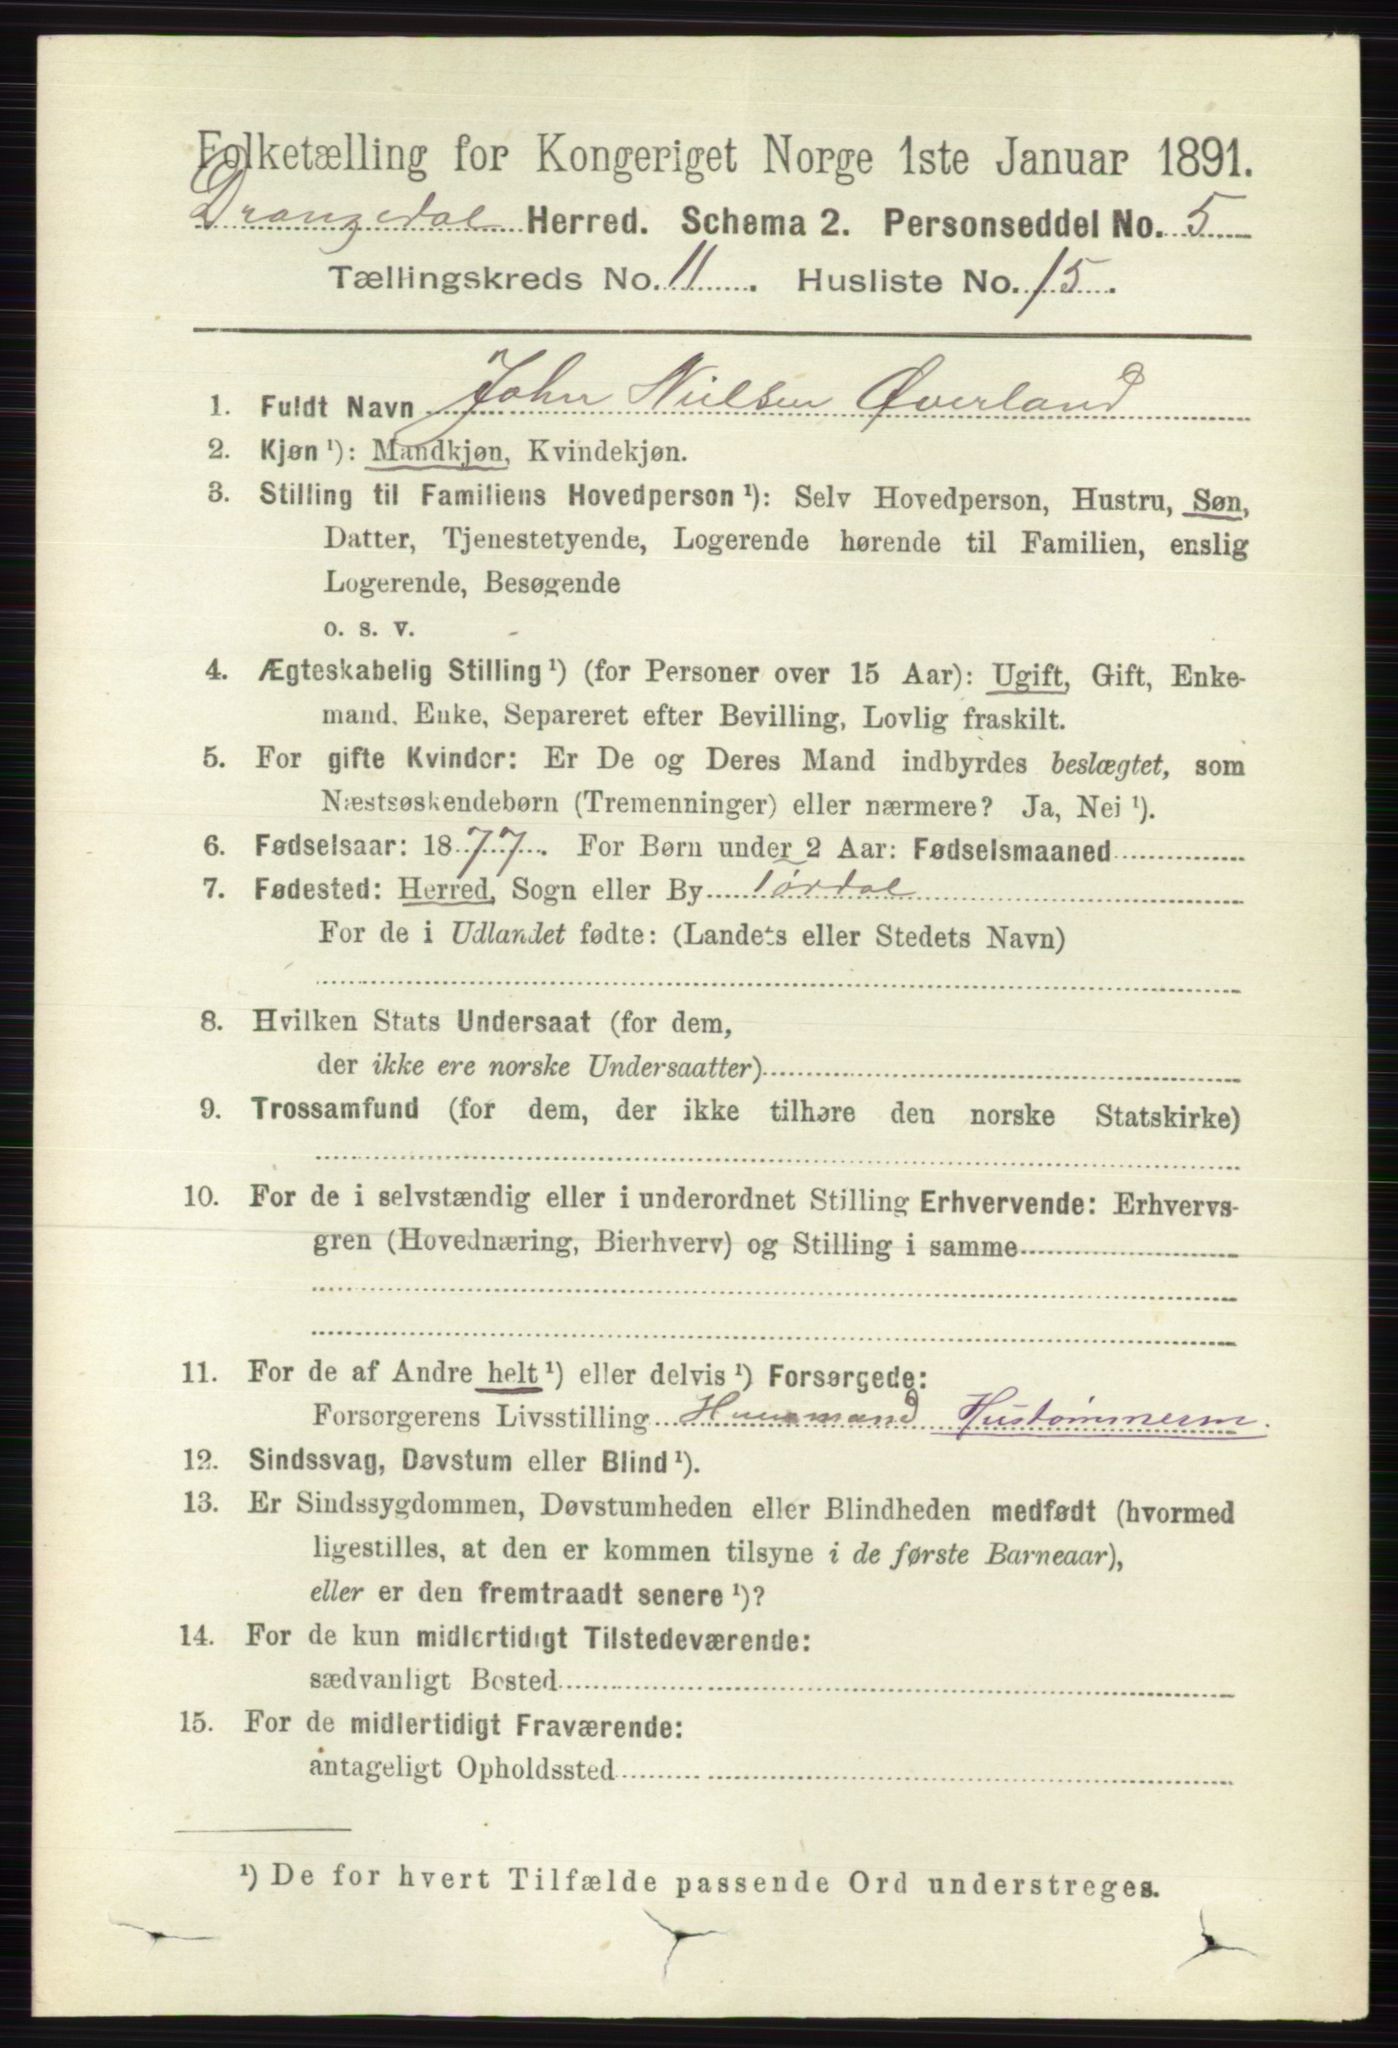 Folketælling for Kongeriget Norge 1ste Januar 1891.
Drangedal Herred. Schema 2. Personseddel No. 5
Tællingskreds No. 11. Husliste No. 15.
1. Fuldt Navn John Nielsen Øverland
2. Kjøn ¹): Mandkjøn, Kvindekjøn.
3. Stilling til Familiens Hovedperson ¹): Selv Hovedperson, Hustru, Søn,
Datter, Tjenestetyende, Logerende hørende til Familien, enslig
Logerende, Besøgende
o. s. v.
4. Ægteskabelig Stilling ¹) (for Personer over 15 Aar): Ugift, Gift, Enke-
mand, Enke, Separeret efter Bevilling, Lovlig fraskilt.
5. For gifte Kvinder: Er De og Deres Mand indbyrdes beslægtet, som
Næstsøskendebørn (Tremenninger) eller nærmere? Ja, Nei ¹).
6. Fødselsaar: 1877. For Børn under 2 Aar: Fødselsmaaned
7. Fødested: Herred, Sogn eller By Tørdal
For de i Udlandet fødte: (Landets eller Stedets Navn)
8. Hvilken Stats Undersaat (for dem,
der ikke ere norske Undersaatter)
9. Trossamfund (for dem, der ikke tilhøre den norske Statskirke)
10. For de i selvstændig eller i underordnet Stilling Erhvervende: Erhvervs-
gren (Hovednæring, Bierhverv) og Stilling i samme
11. For de af Andre helt ¹) eller delvis ¹) Forsørgede:
Forsørgerens Livsstilling Huusmand Hustømmerm.
12. Sindssvag, Døvstum eller Blind ¹).
13. Er Sindssygdommen, Døvstumheden eller Blindheden medfødt (hvormed
ligestilles, at den er kommen tilsyne i de første Barneaar),
eller er den fremtraadt senere ¹)?
14. For de kun midlertidigt Tilstedeværende:
sædvanligt Bosted
15. For de midlertidigt Fraværende:
antageligt Opholdssted
¹) De for hvert Tilfælde passende Ord understreges.